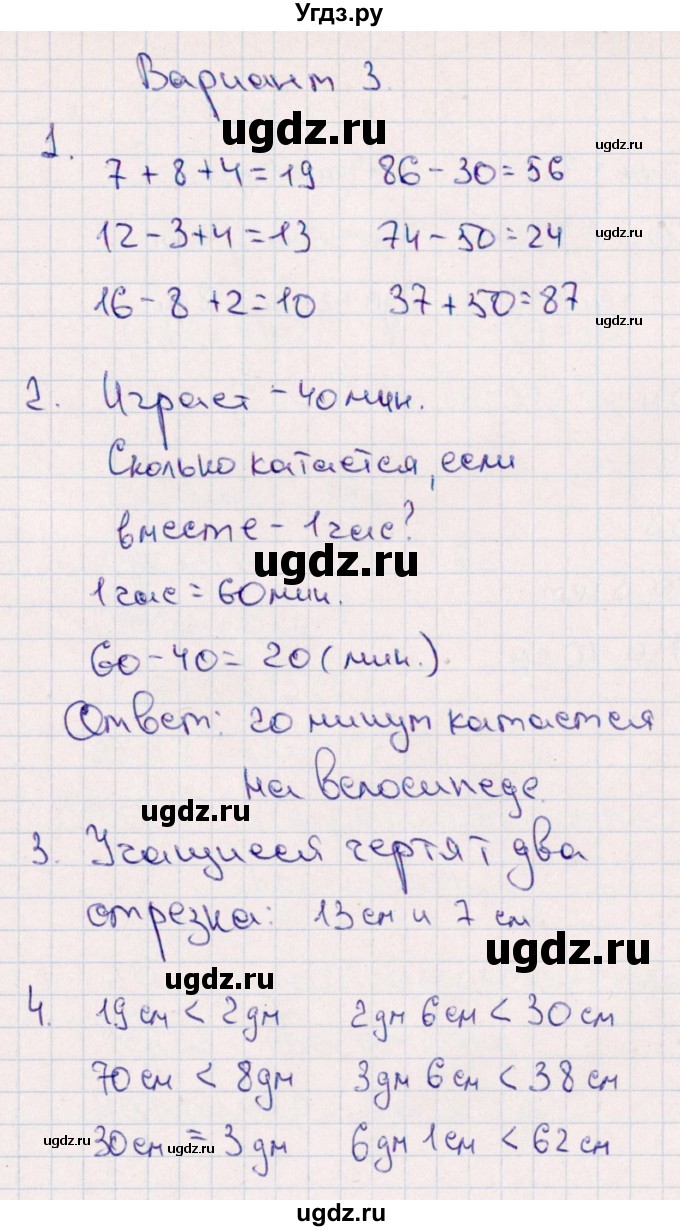 Угдз.ру
Вариант 3.
ugdz.ru
1.
7 + 8 + 4 = 19 86 - 30 = 56
ugdz.ru
12 - 3 + 4 = 13 74 - 50 = 24
ugdz.ru
16 - 8 + 2 = 10 37 + 50 = 87
ugdz.ru
2. Играет - 40 мин.
Сколько катается, если
вместе - 1 час?
ugdz.ru
1 час = 60 мин.
60 - 40 = 20 (мин.).
Ответ: 20 минут катается
на велосипеде.
ugdz.ru
3. Учащиеся чертят два
отрезка: 13 см и 7 см
ugdz.ru
ugdz.ru
4. 19 см < 2 дм 2 дм 6 см < 30 см
70 см < 8 дм 3 дм 6 см < 38 см
ugdz.ru
30 см = 3 дм 6 дм 1 см < 62 см
ugdz.ru
ugdz.ru